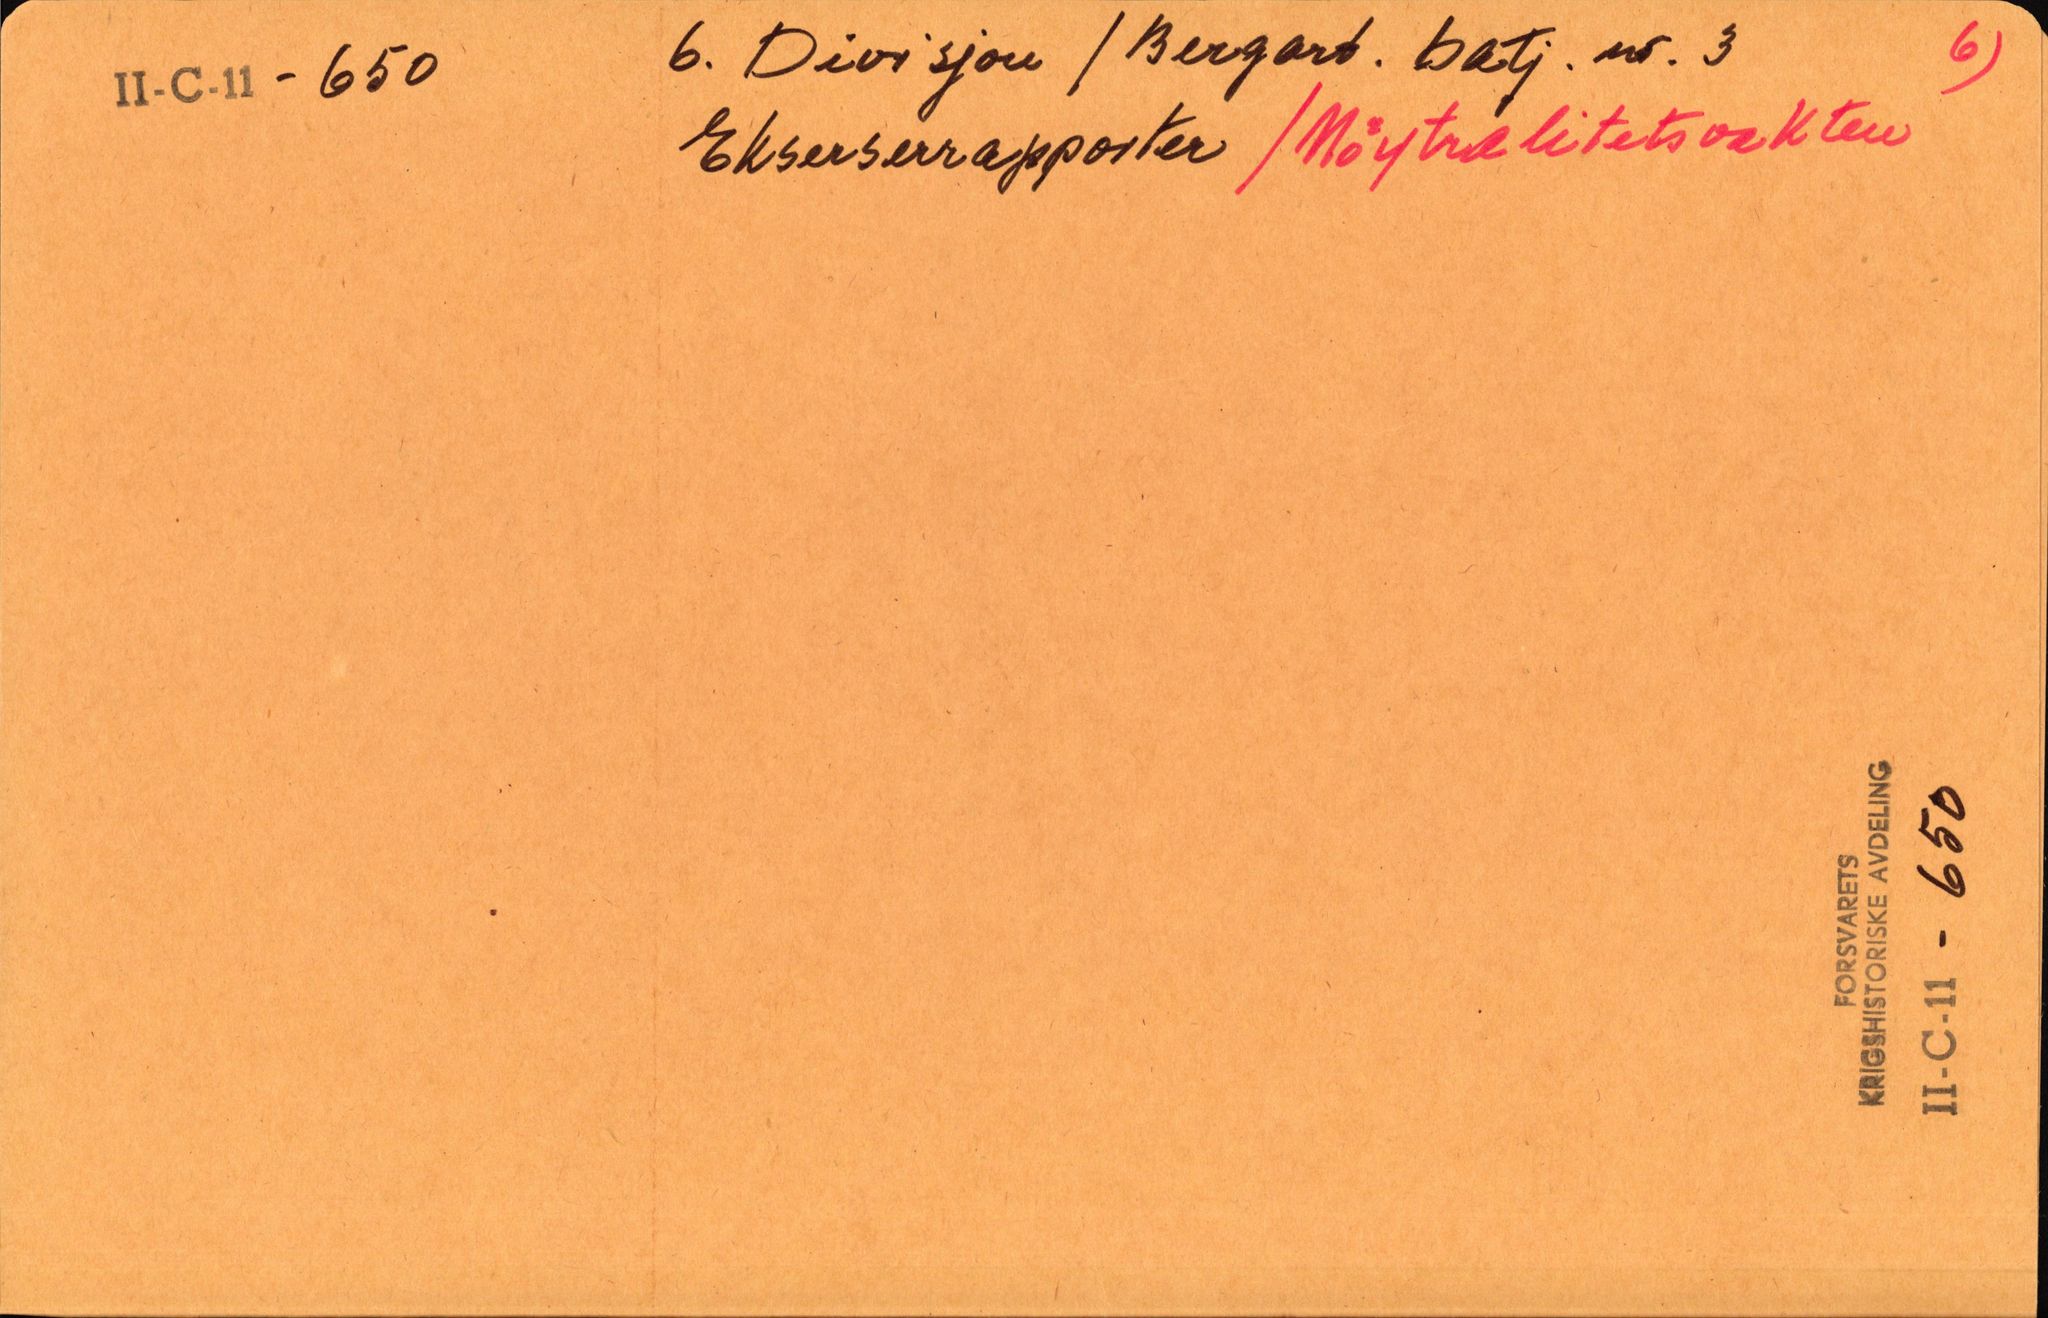 II-C-11 - 650
6. Divisjon / Bergart. batj. nr. 3
6)
Ekserserrapporter /Nöytralitetsvakten
FORSVARETS
KRIGSHISTORISKE AVDELING
II-C-11 - 650